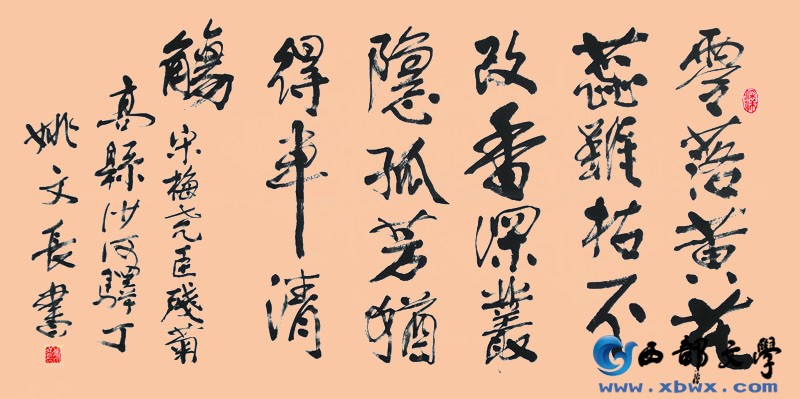 零落黄花
蕊雖枯不
改香深叢
隐孤芳猶
得車清
觴 宋梅尧臣殘菊
高縣沙河驛丁
姚文長書
西部文學
www.xbwx.com